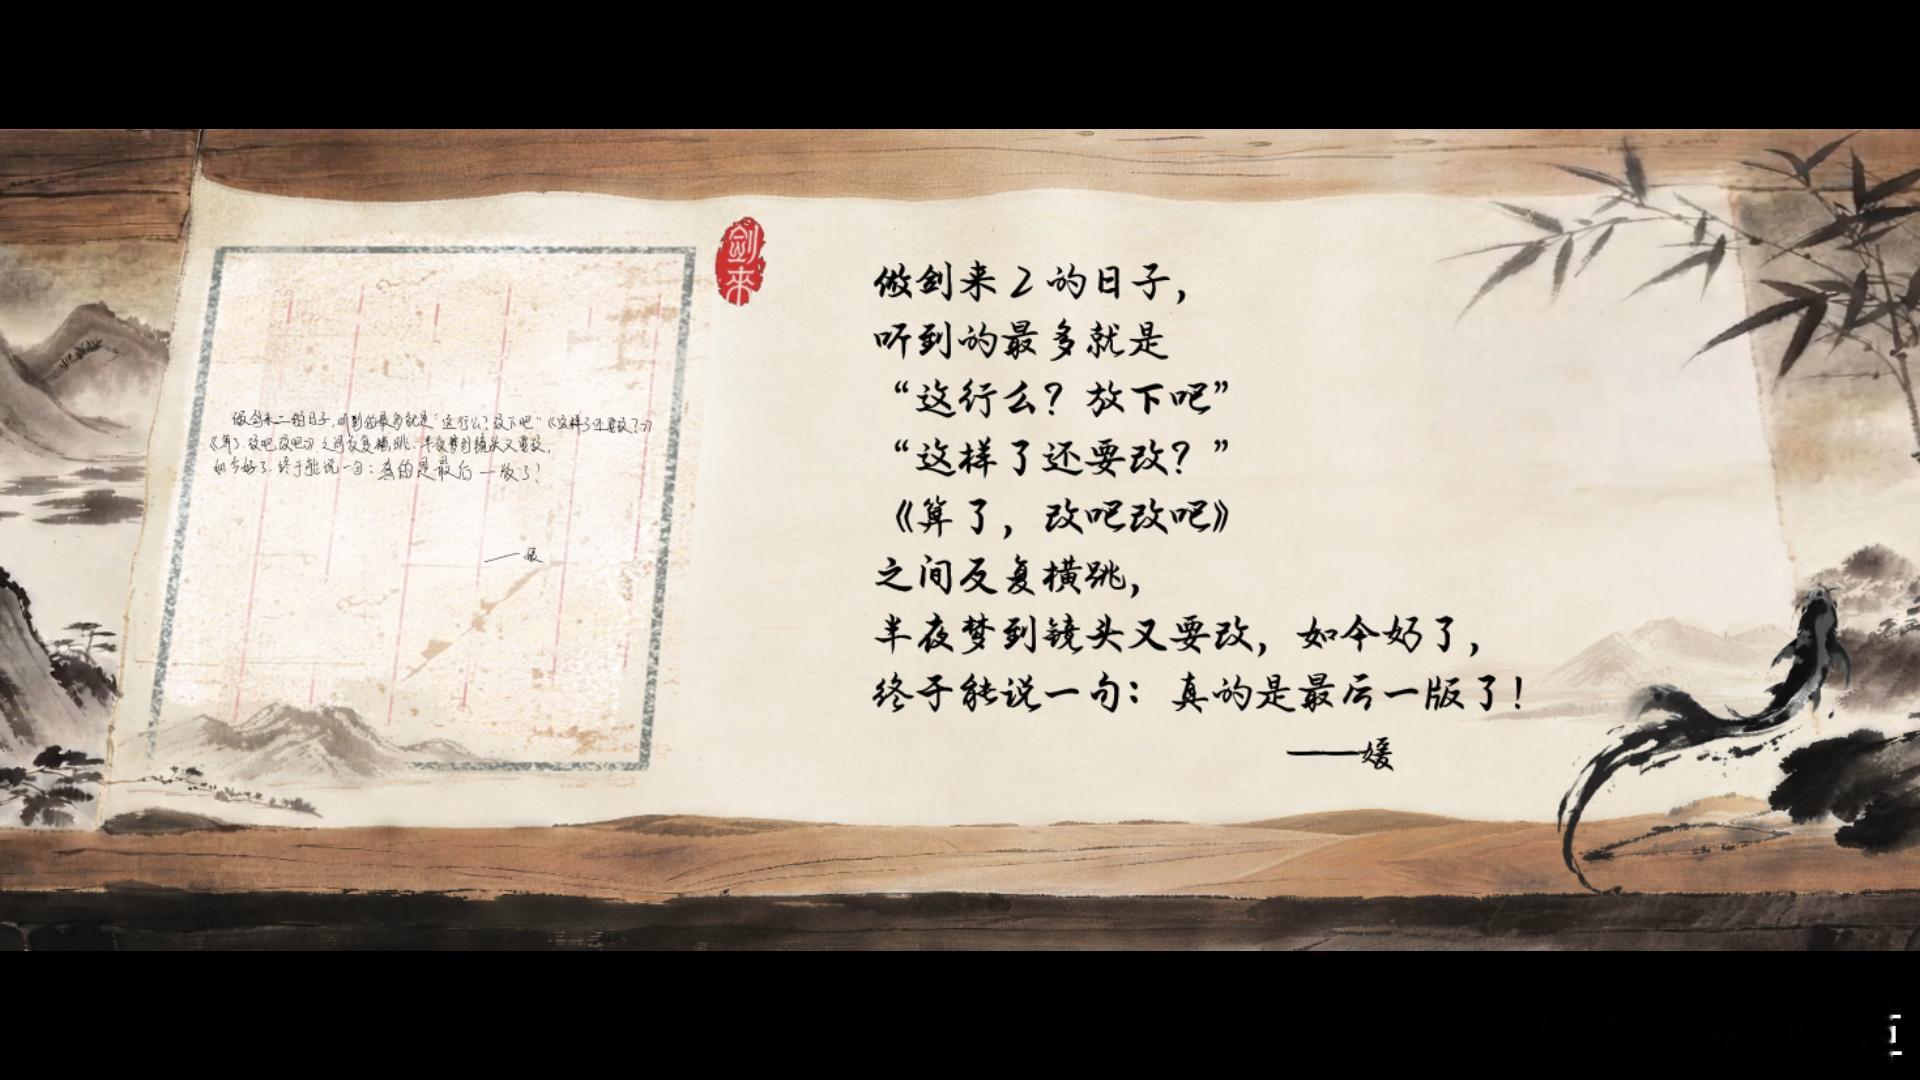 做剑来二的日子,听到的最多就是“这行么?放下吧”《这样了还要改?》
《算了,改吧改吧》之间反复横跳,半夜梦到镜头又要改,
如今好了,终于能说一句:真的是最后一版了!
——媛
剑来
做剑来2的日子,
听到的最多就是
“这行么?放下吧”
“这样了还要改?”
《算了,改吧改吧》
之间反复横跳,
半夜梦到镜头又要改,如今好了,
终于能说一句:真的是最后一版了!
——媛